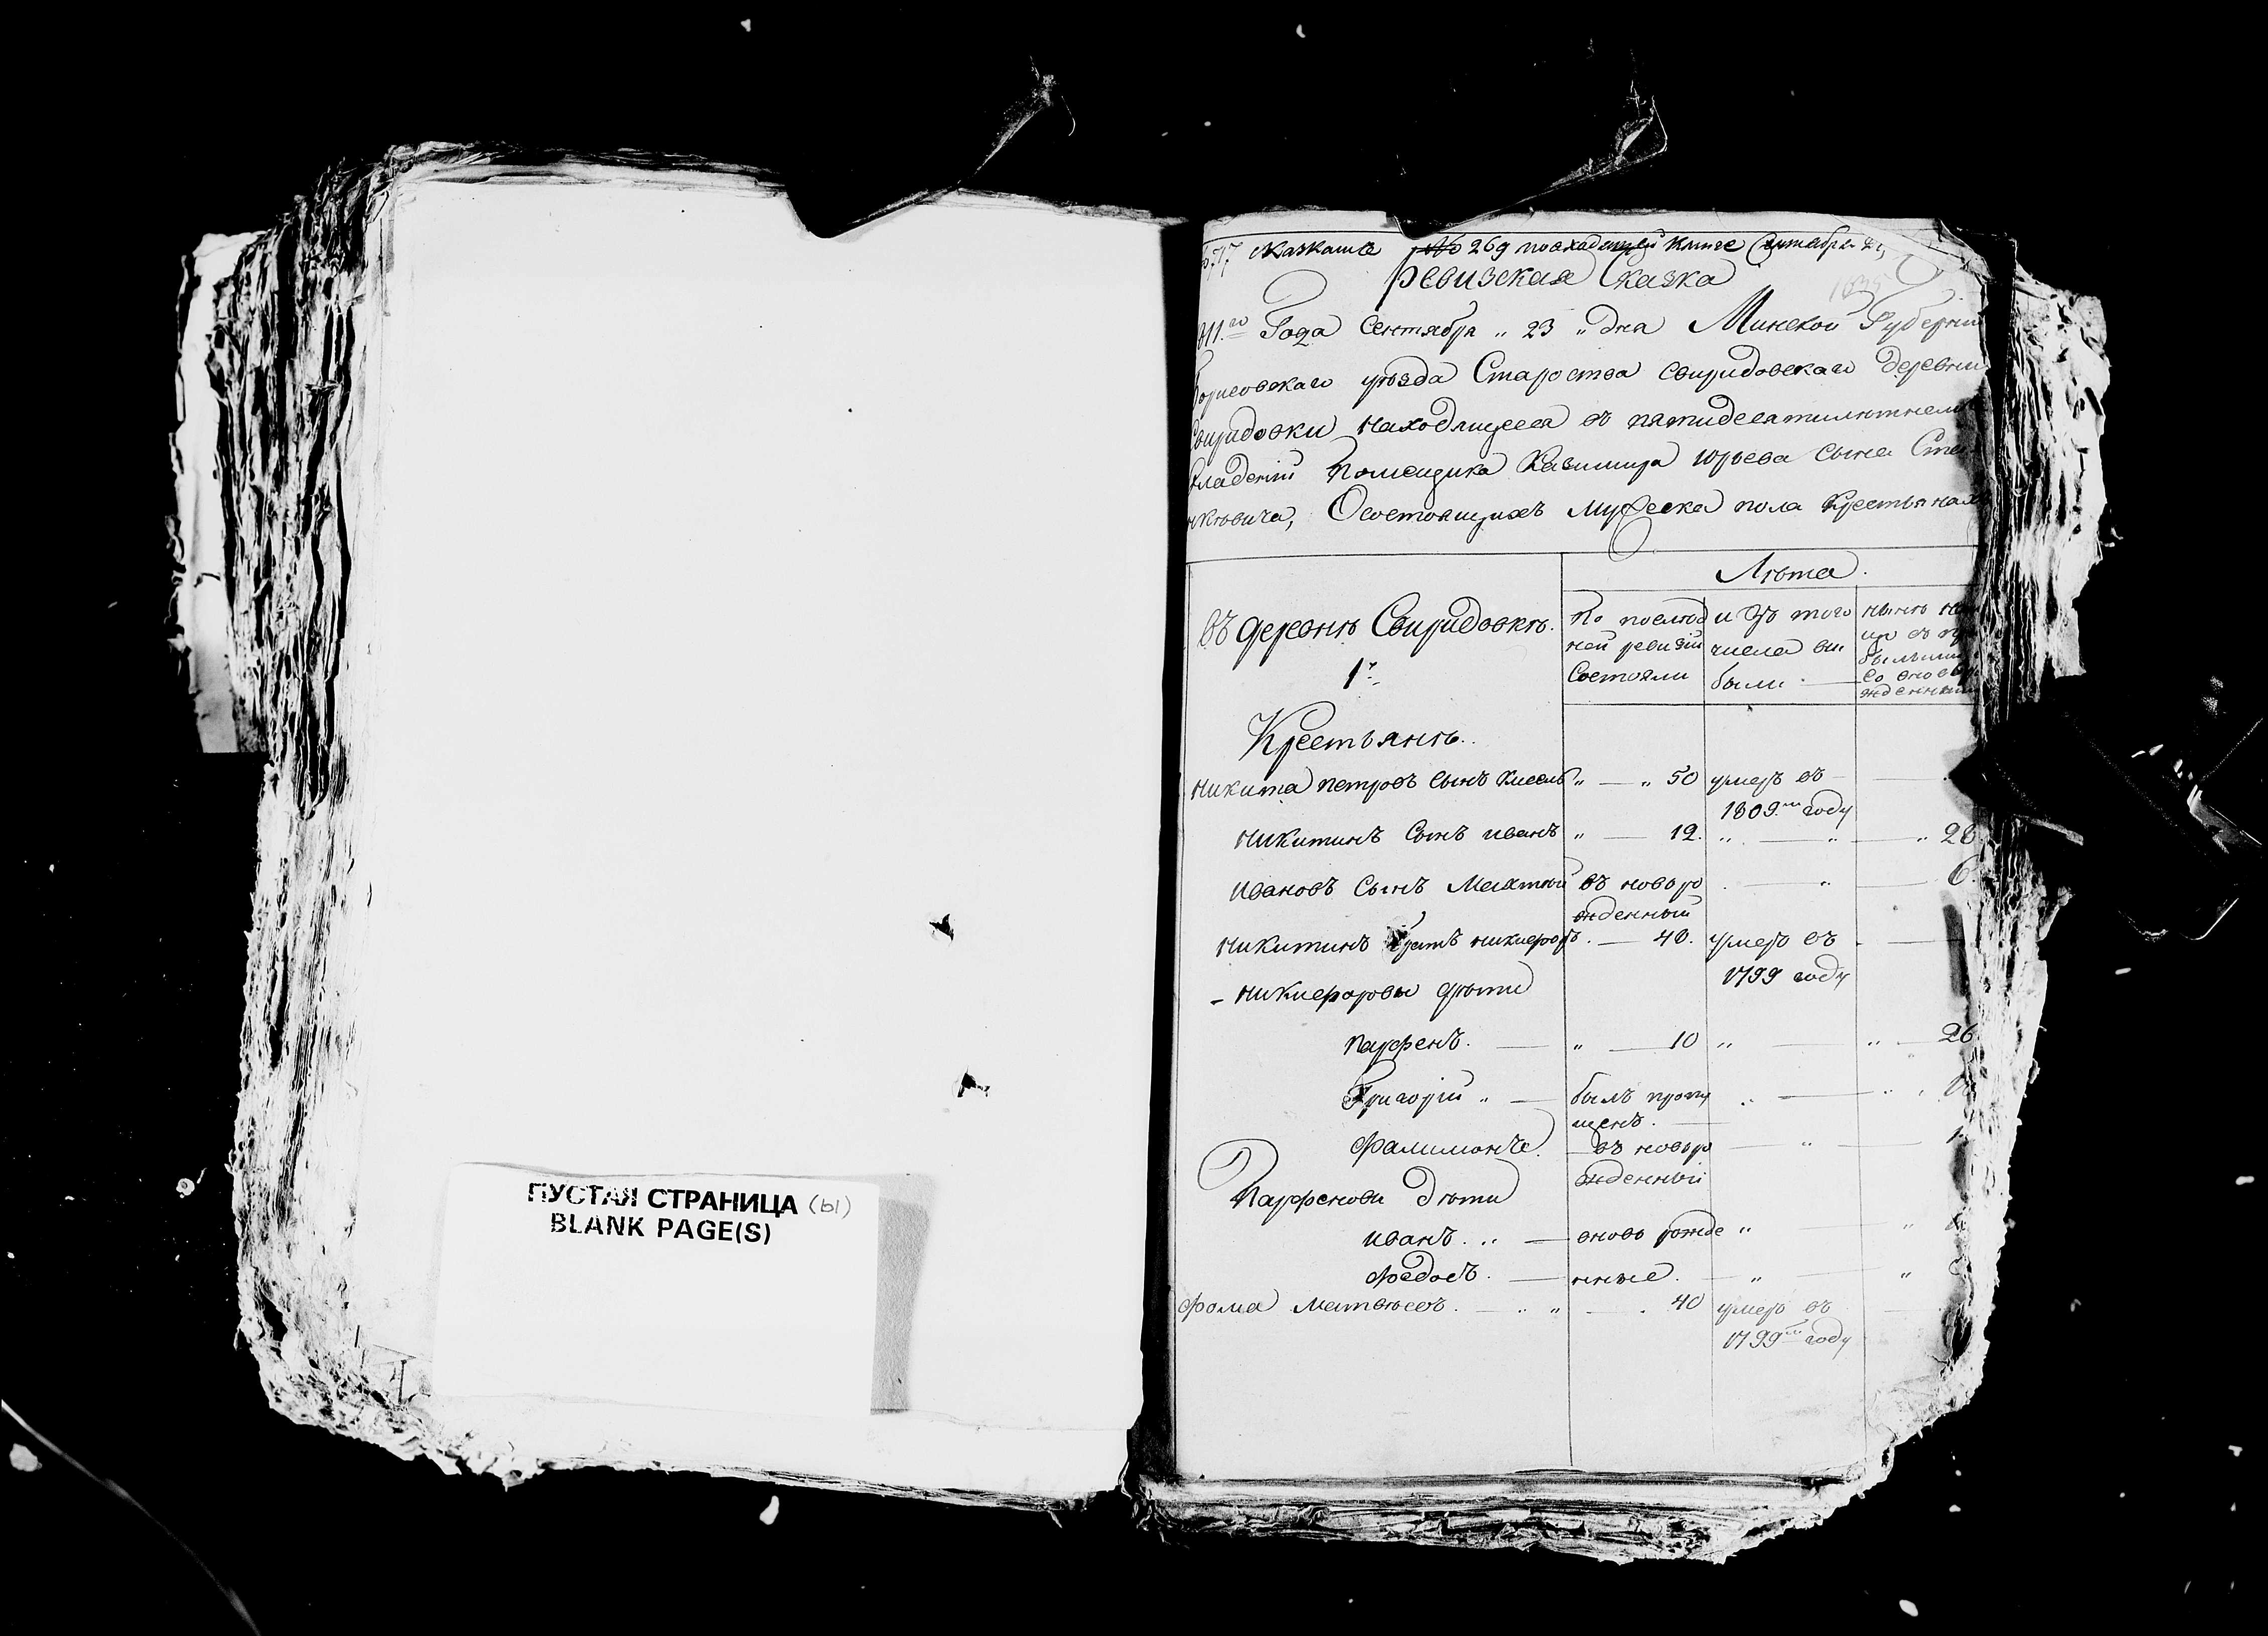 ПУСТАЯ СТРАНИЦА (ы)
BLANK PAGE(S)
№ 269 по входящей книге Сентября
Ревизская Сказка
811.го Года Сентября „ 23 „ дня Минской Губернии
Борисовскаго уѣзда Староства Свиридовскаго деревни
Свиридовки находящееся въ пятидесятилѣтнем
владении Помещика Казимира Юрьева Сына
Осостоящихъ мужеска пола Крестьянах
Лѣта.
въ деревнѣ Свиридовкѣ.
1.
По послѣд
ней ревизіи
Состояли
из того
числа вы
были
нынѣ
Крестьянѣ.
Никита Петровъ Сынъ Кисель „ — „ 50 умеръ въ
1809.м году
Никитинъ Сынъ Иванъ „ — 12. „ — „ — „ 28
Ивановъ Сынъ въ новоро „ — 6.
жденный
Никитинъ братъ Никифоръ. — 40. умеръ въ
1799 году
– Никифоровы дѣти
Парфенъ. — „ — 10 „ — „ — 26
Григорій „ — былъ пропу
щенъ. —
Фалимонъ въ новоро
жденный
Парфеновы Дѣти
Иванъ. „ — вновь рожде „
Федосъ. — нные. — „ — „
Фома Матвѣевъ. — „ „ — . 40 умеръ въ
1799м году